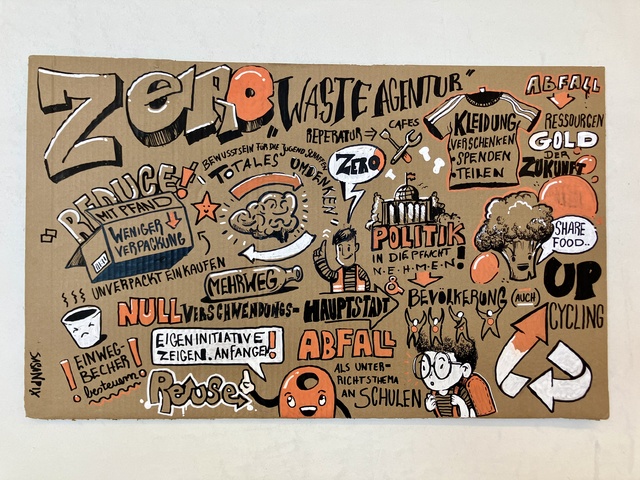 ZERO
"WASTE AGENTUR"
ABFALL
RESSOURCEN
GOLD
DER
ZUKUNFT
REPERATUR → CAFES
KLEIDUNG
VERSCHENKEN
• SPENDEN
• TEILEN
BEWUSSTSEIN FÜR DIE JUGEND SCHAFFEN
TOTALES UMDENKEN!
ZERO
REDUCE!
MIT PFAND
WENIGER
VERPACKUNG
UNVERPACKT EINKAUFEN
MEHRWEG
POLITIK
IN DIE PFLICHT
N•E•H•M•E•N!
&
BEVÖLKERUNG
AUCH
SHARE
FOOD..
UP
CYCLING
NULLVERSCHWENDUNGS-HAUPTSTADT
EIGENINITIATIVE
ZEIGEN, ANFANGEN!
EINWEG-
BECHER
besteuern!
Refuse
ABFALL
ALS UNTER-
RICHTSTHEMA
AN SCHULEN